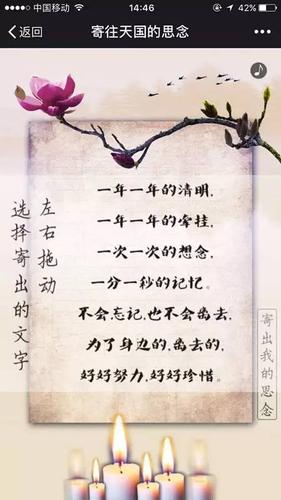 中国移动
14:46
返回
寄往天国的思念
一年一年的清明，
一年一年的牵挂，
一次一次的想念，
一分一秒的记忆。
不会忘记，也不会离去，
为了身边的，离去的，
好好努力，好好珍惜。
左右拖动
选择寄出的文字
寄出我的思念